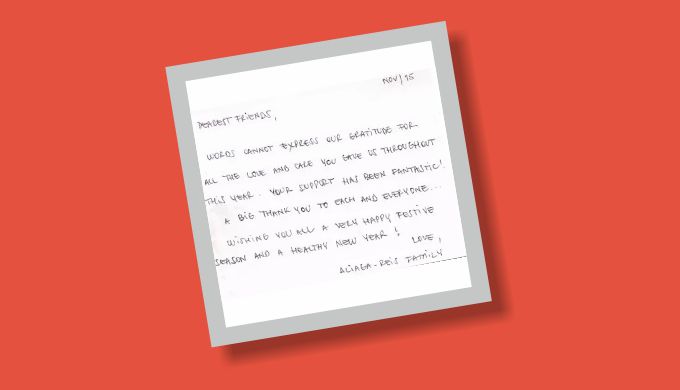 NOV/15
DEAREST FRIENDS,
WORDS CANNOT EXPRESS OUR GRATITUDE FOR
ALL THE LOVE AND CARE YOU GAVE US THROUGHOUT
THIS YEAR. YOUR SUPPORT HAS BEEN FANTASTIC!
A BIG THANK YOU TO EACH AND EVERYONE...
WISHING YOU ALL A VERY HAPPY FESTIVE
SEASON AND A HEALTHY NEW YEAR!
LOVE,
ALIAGA-REIS FAMILY